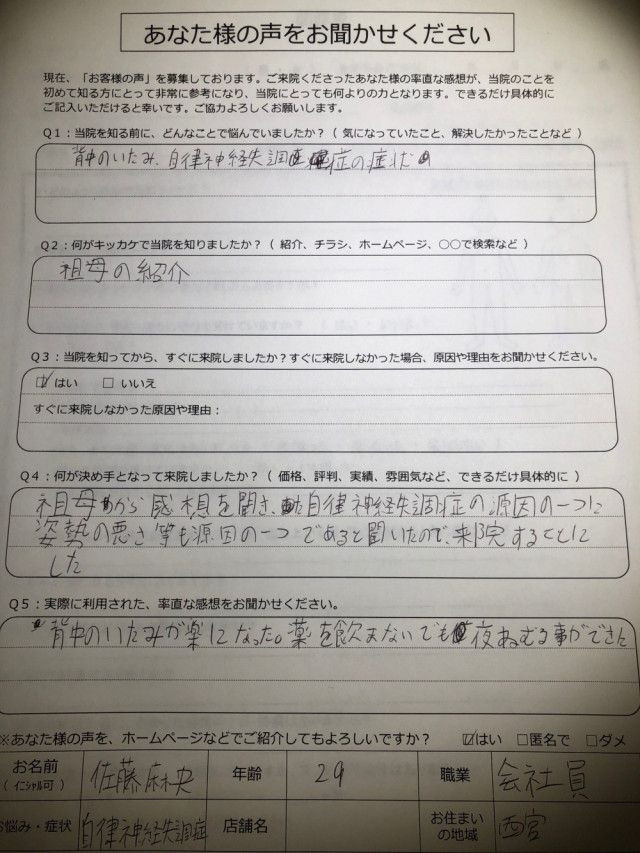 あなた様の声をお聞かせください
現在、「お客様の声」を募集しております。ご来院くださったあなた様の率直な感想が、当院のことを
初めて知る方にとって非常に参考になり、当院にとっても何よりの力となります。できるだけ具体的に
ご記入いただけると幸いです。ご協力よろしくお願いします。
Q1：当院を知る前に、どんなことで悩んでいましたか？（ 気になっていたこと、解決したかったことなど ）
背中のいたみ、自律神経失調症の症状
Q2：何がキッカケで当院を知りましたか？（ 紹介、チラシ、ホームページ、○○で検索など ）
祖母の紹介
Q3：当院を知ってから、すぐに来院しましたか？すぐに来院しなかった場合、原因や理由をお聞かせください。
☑はい □いいえ
すぐに来院しなかった原因や理由：
Q4：何が決め手となって来院しましたか？（ 価格、評判、実績、雰囲気など、できるだけ具体的に ）
祖母から感想を聞き、自律神経失調症の源因の一つに
姿勢の悪さ等も源因の一つであると聞いたので、来院することに
した
Q5：実際に利用された、率直な感想をお聞かせください。
背中のいたみが楽になった。薬を飲まないでも夜ねむる事ができた
※あなた様の声を、ホームページなどでご紹介してもよろしいですか？ ☑はい □匿名で □ダメ
お名前 佐藤麻央 年齢 29 職業 会社員
（イニシャル可）
お悩み・症状 自律神経失調症 店舗名 お住まいの地域 西宮